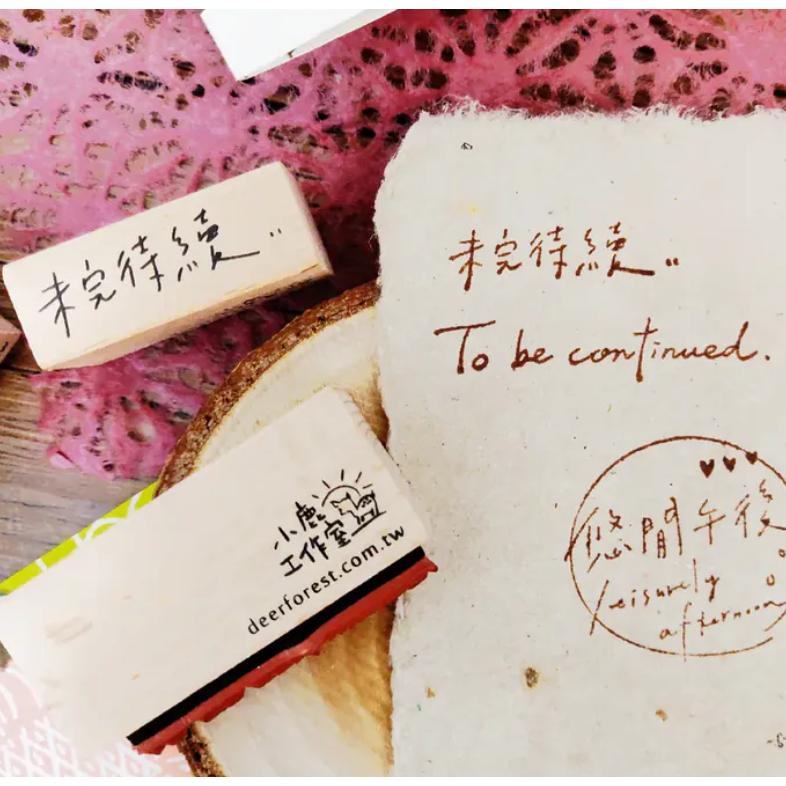 未完待續..
小鹿
工作室
deerforest.com.tw
未完待續..
To be continued.
悠閒午後
Leisurely
afternoon